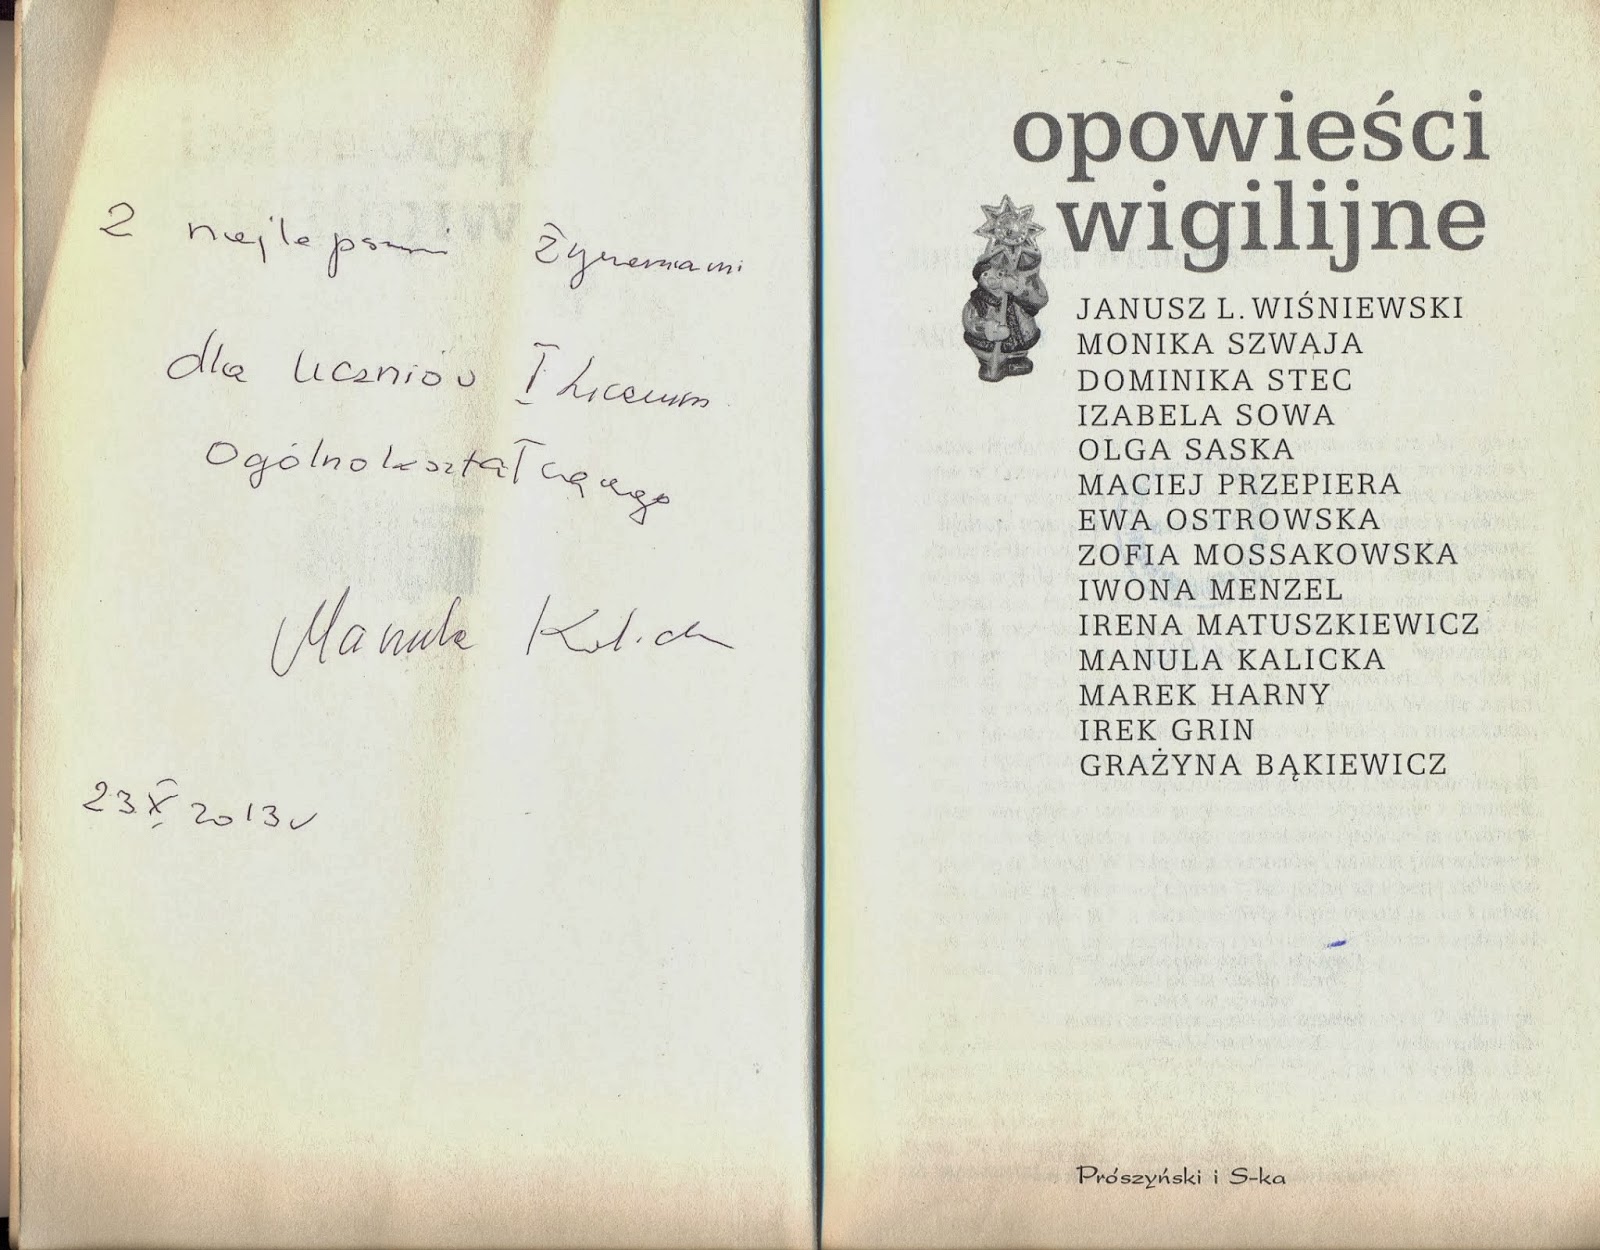 Z najlepszymi życzeniami
dla uczniów I Liceum
Ogólnokształcącego
Manula Kalicka
23 X 2013 r
opowieści
wigilijne
JANUSZ L. WIŚNIEWSKI
MONIKA SZWAJA
DOMINIKA STEC
IZABELA SOWA
OLGA SASKA
MACIEJ PRZEPIERA
EWA OSTROWSKA
ZOFIA MOSSAKOWSKA
IWONA MENZEL
IRENA MATUSZKIEWICZ
MANULA KALICKA
MAREK HARNY
IREK GRIN
GRAŻYNA BĄKIEWICZ
Prószyński i S-ka